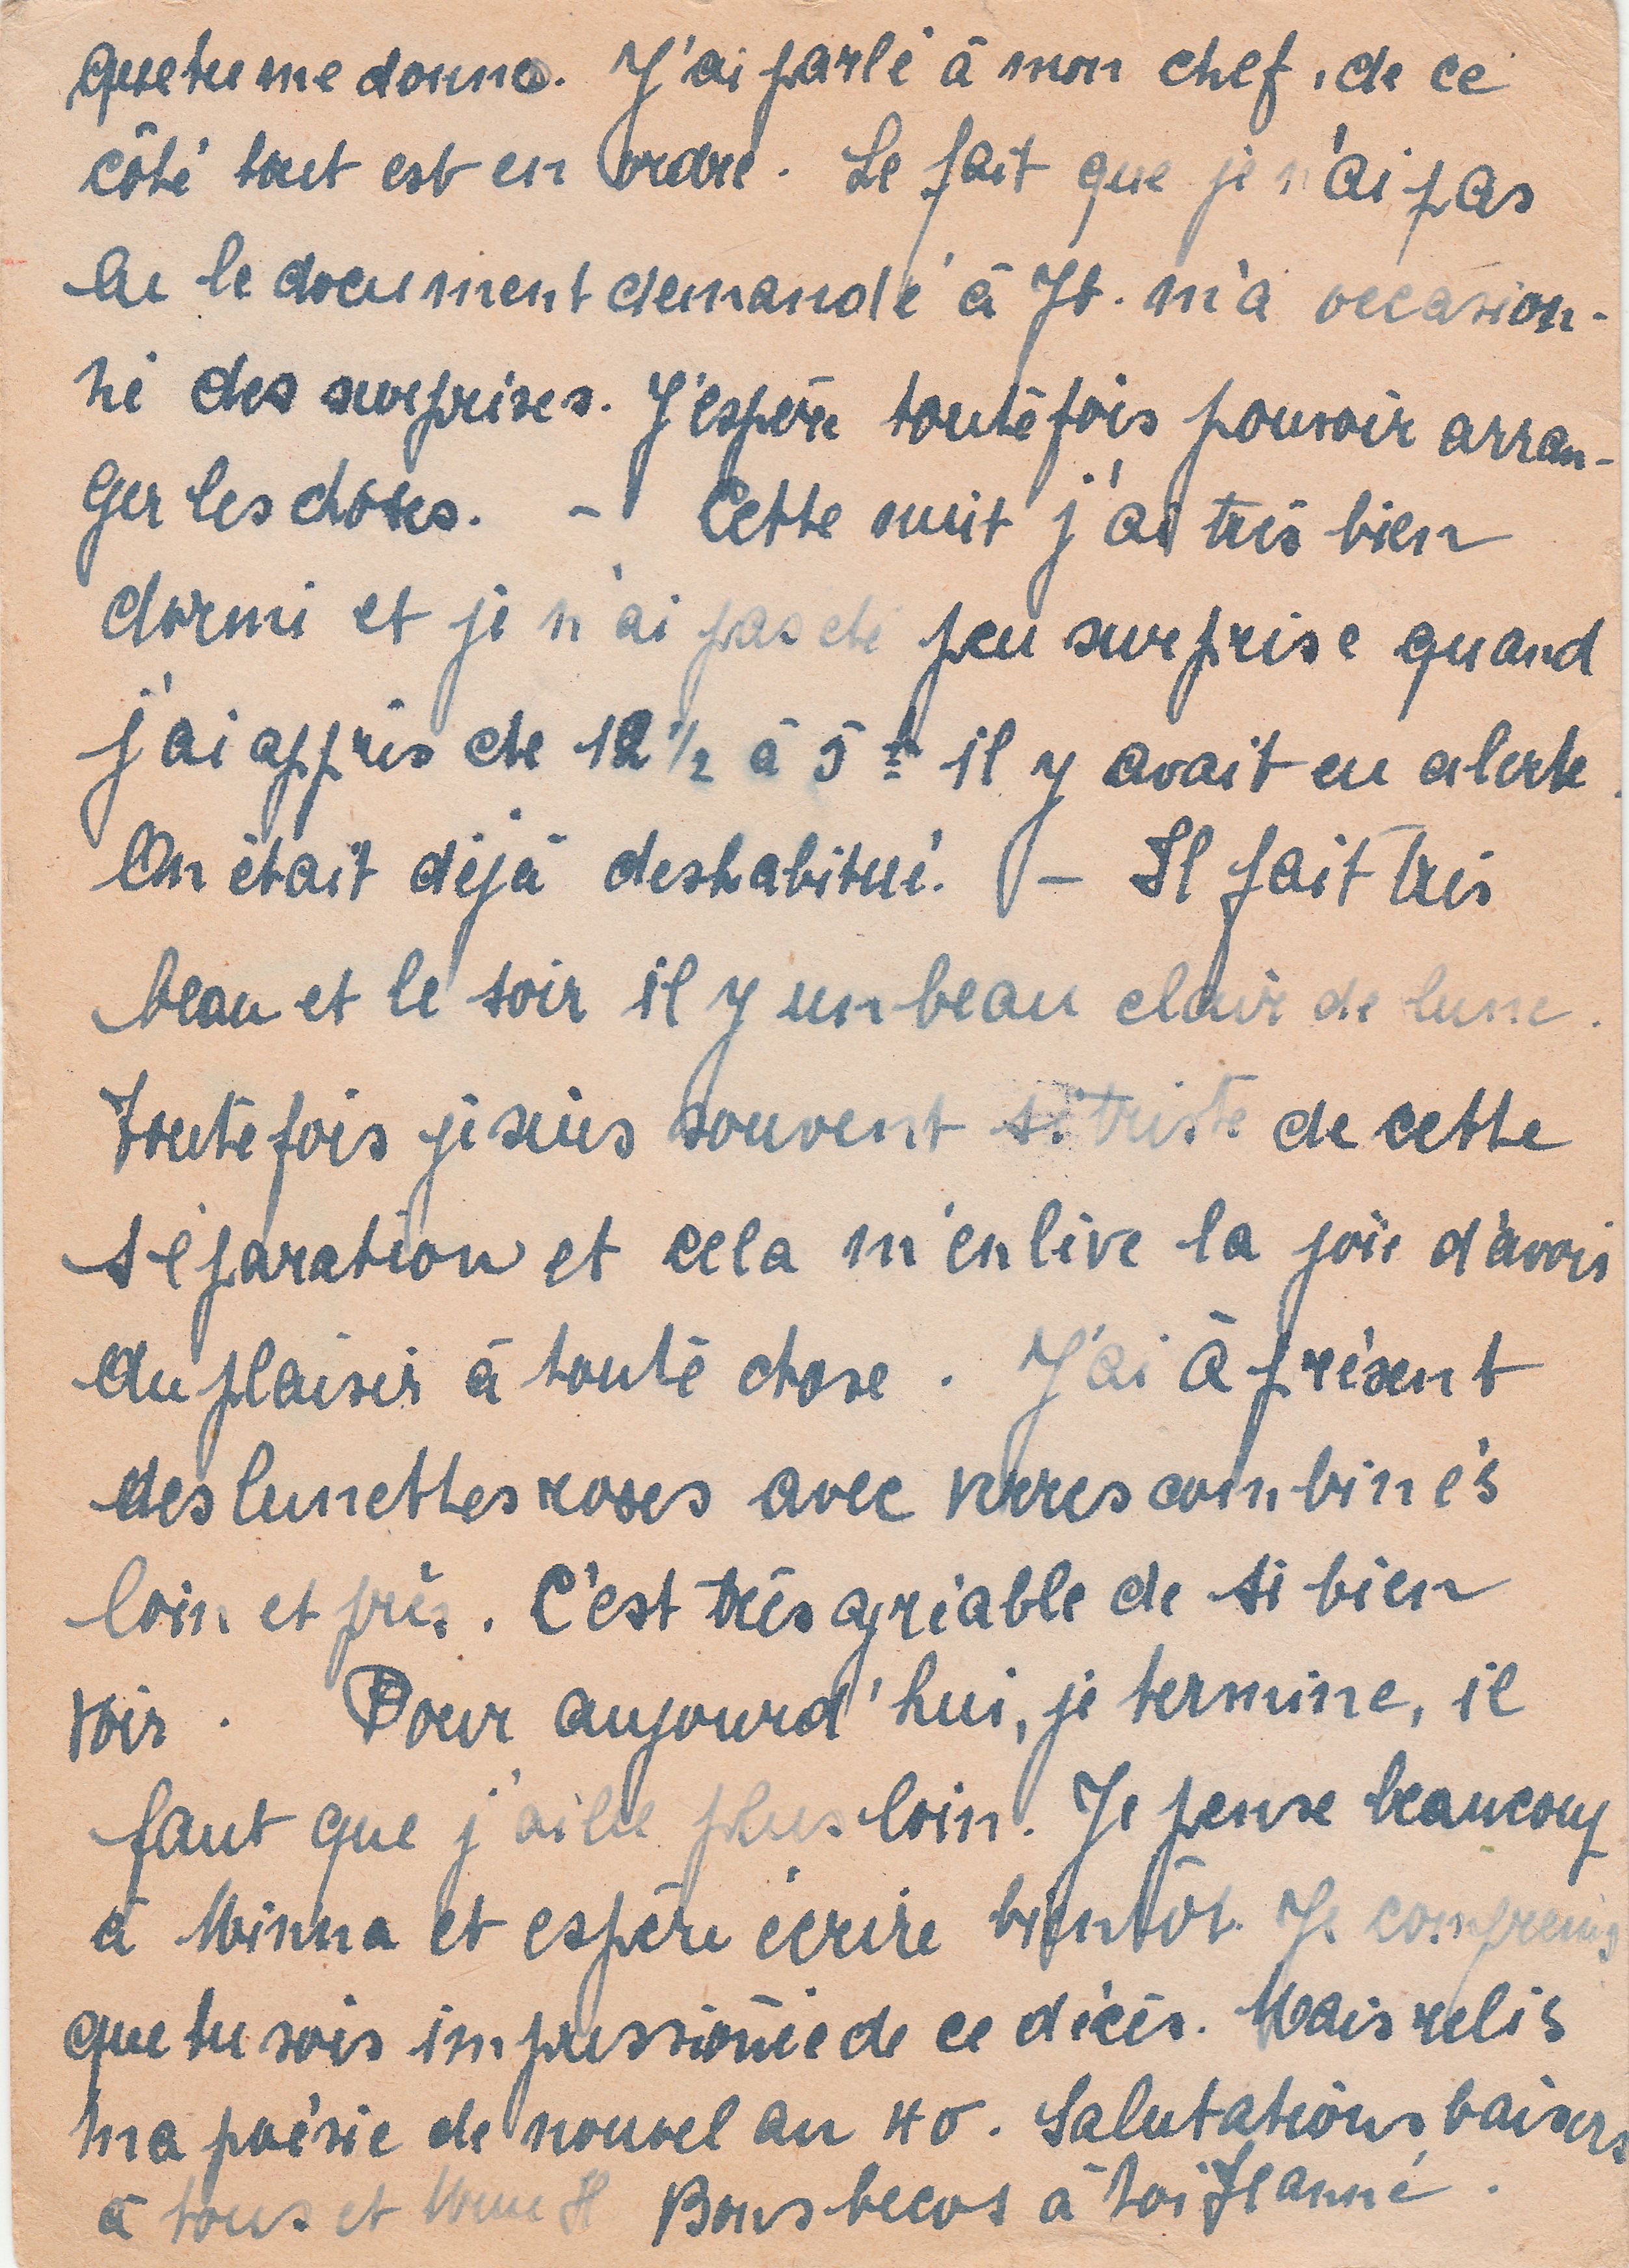 que tu me donne. J'ai parlé à mon chef, de ce
côté tout est en ordre. Le fait que je n'ai pas
eu le document demandé à It. m'a occasion-
né des surprises. J'espère toutefois pouvoir arran-
ger les choses. - Cette nuit j'ai très bien
dormi et je n'ai pas été peu surprise quand
j'ai appris de 12 1/2 à 5 h il y avait eu alerte.
On était déjà deshabitué. - Il fait très
beau et le soir il y un beau clair de lune.
Toutefois je suis souvent si triste de cette
séparation et cela m'enlève la joie d'avoir
du plaisir à toute chose. J'ai à présent
des lunettes roses avec verres combinés
loin et près. C'est très agréable de si bien
voir. Pour aujourd'hui, je termine, il
faut que j'aille plus loin. Je pense beaucoup
à Minna et espère écrire bientôt. Je comprends
que tu sois impressionée de ce décès. Mais relis
ma poésie de nouvel an 40. Salutations baisers
à tous et Mme H Bons becos à toi Jeanne.